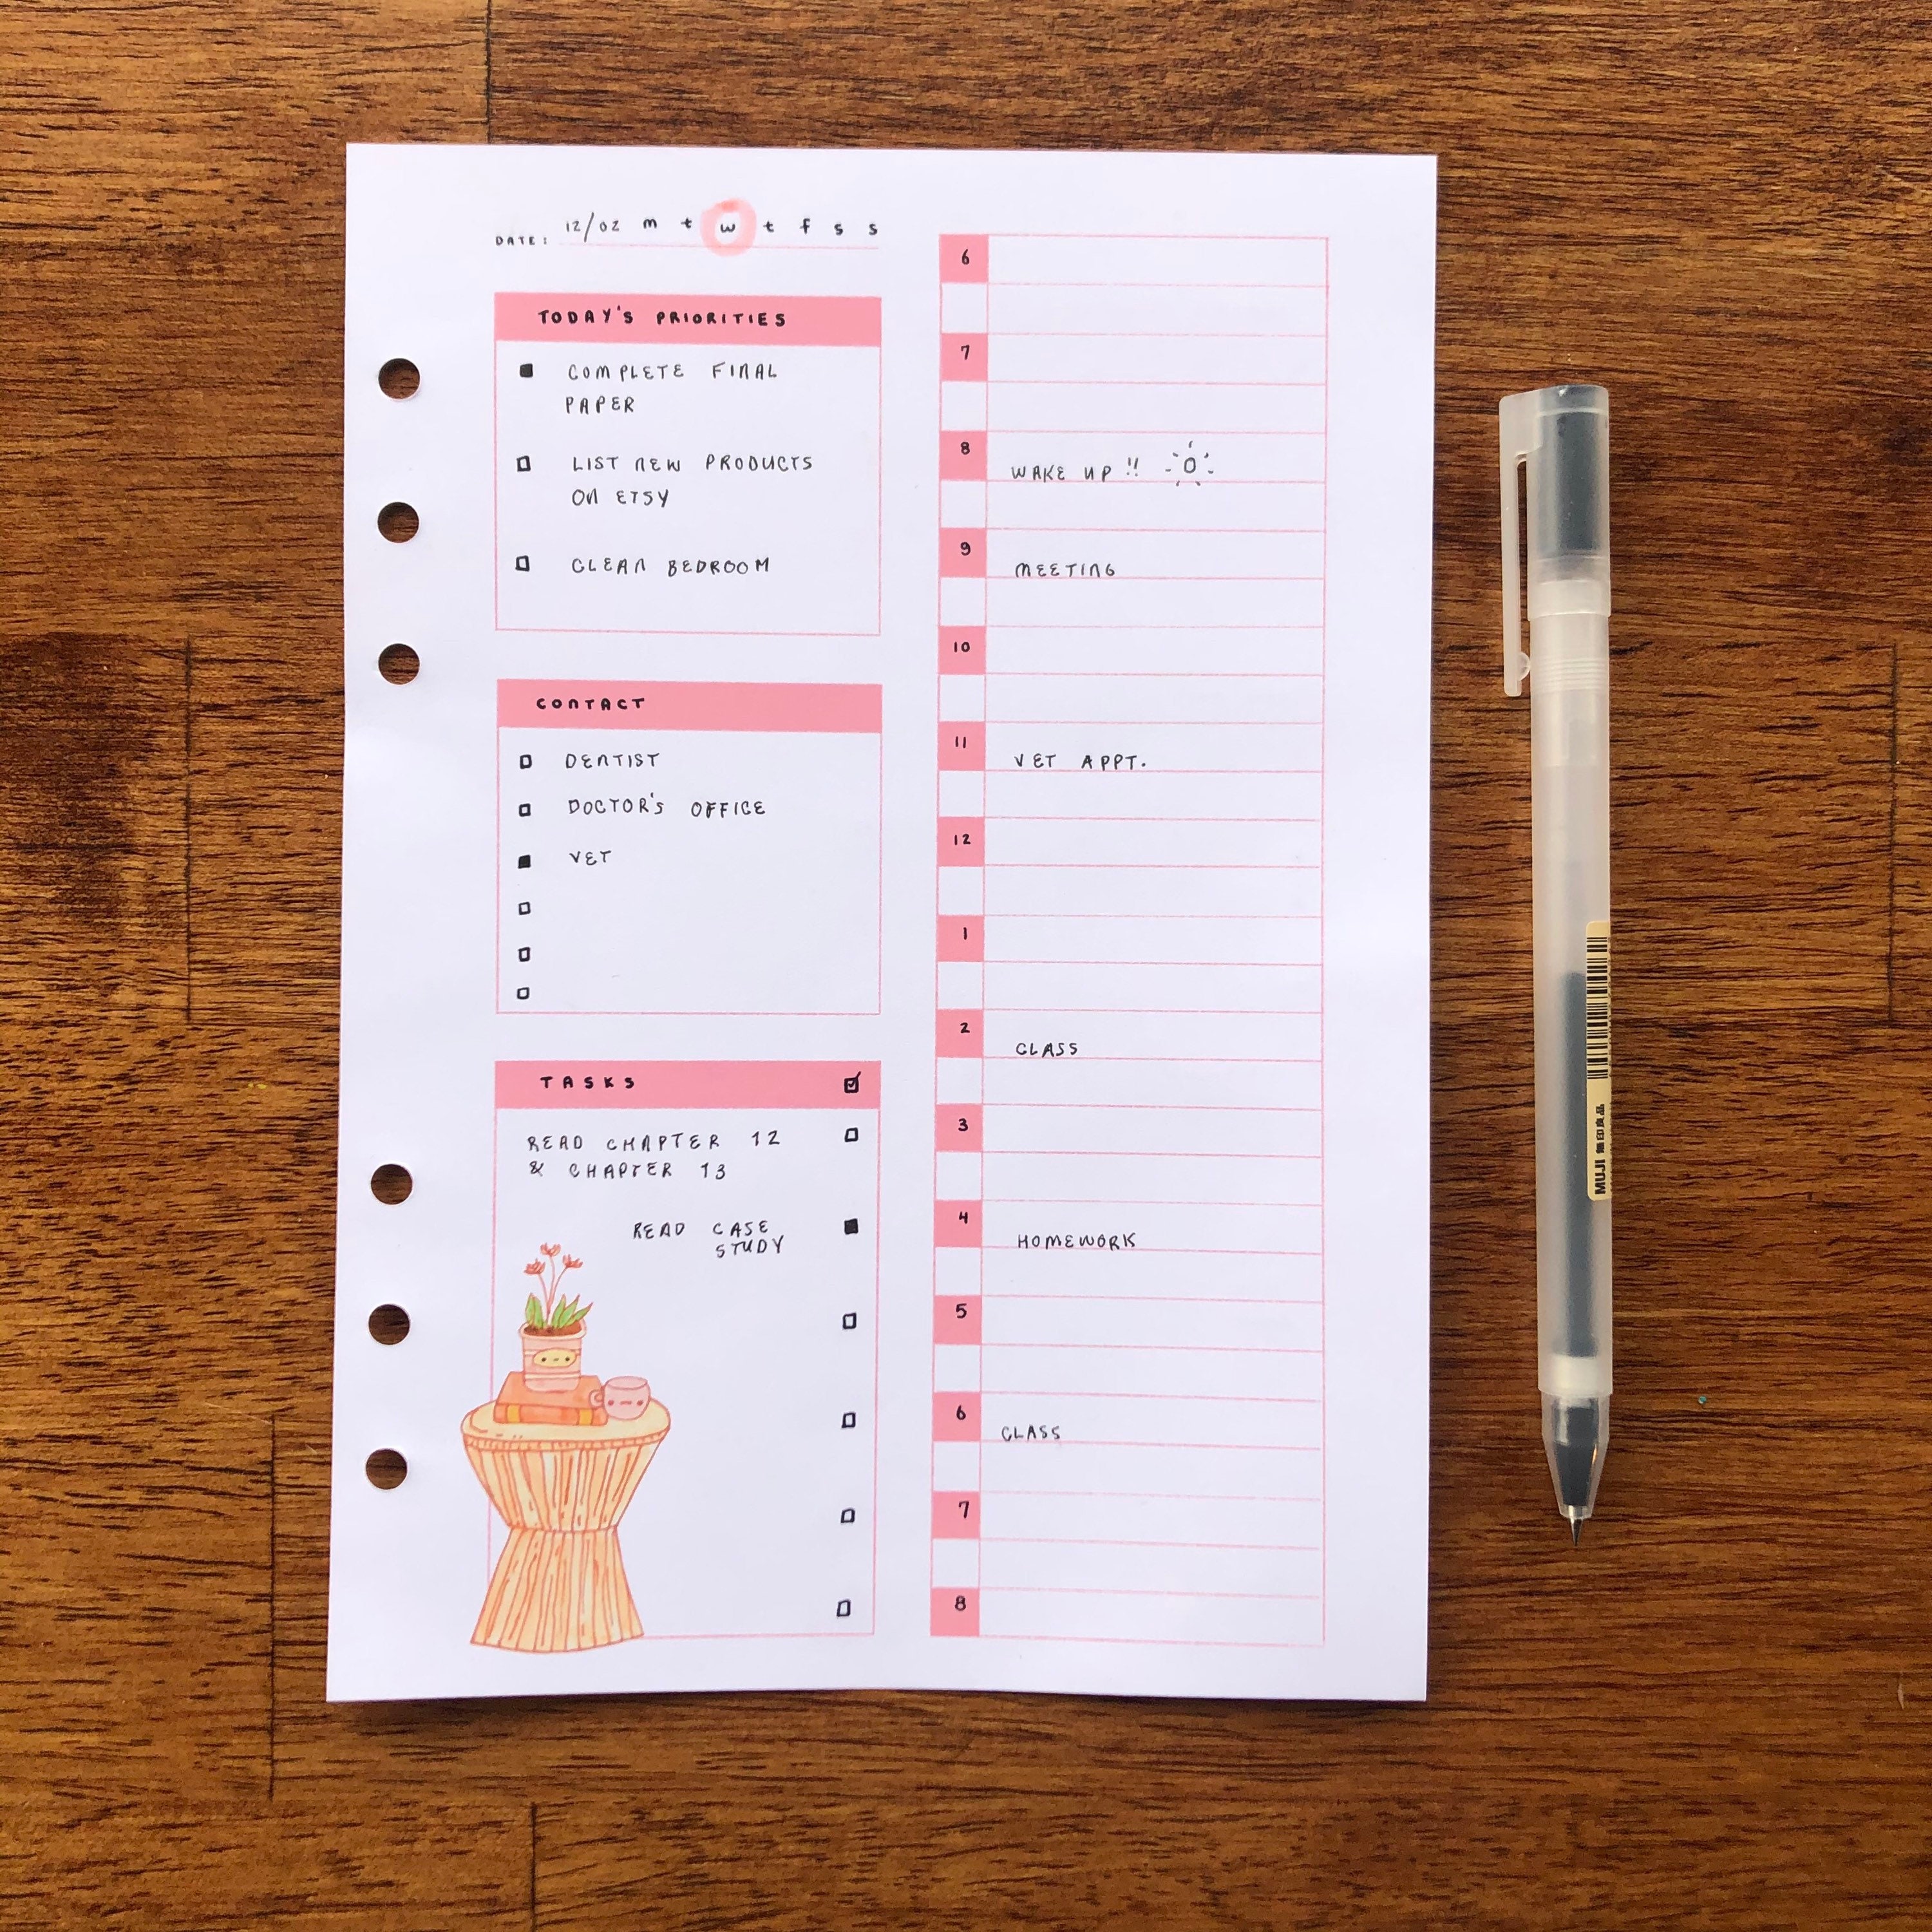 DATE: 12/02 m t w t f s s
TODAY'S PRIORITIES
COMPLETE FINAL
PAPER
LIST NEW PRODUCTS
ON ETSY
CLEAN BEDROOM
CONTACT
DENTIST
DOCTOR'S OFFICE
VET
TASKS
READ CHAPTER 12
& CHAPTER 13
READ CASE
STUDY
6
7
8 WAKE UP !!
9 MEETING
10
11 VET APPT.
12
1
2 CLASS
3
4 HOMEWORK
5
6 CLASS
7
8
MUJI 無印良品